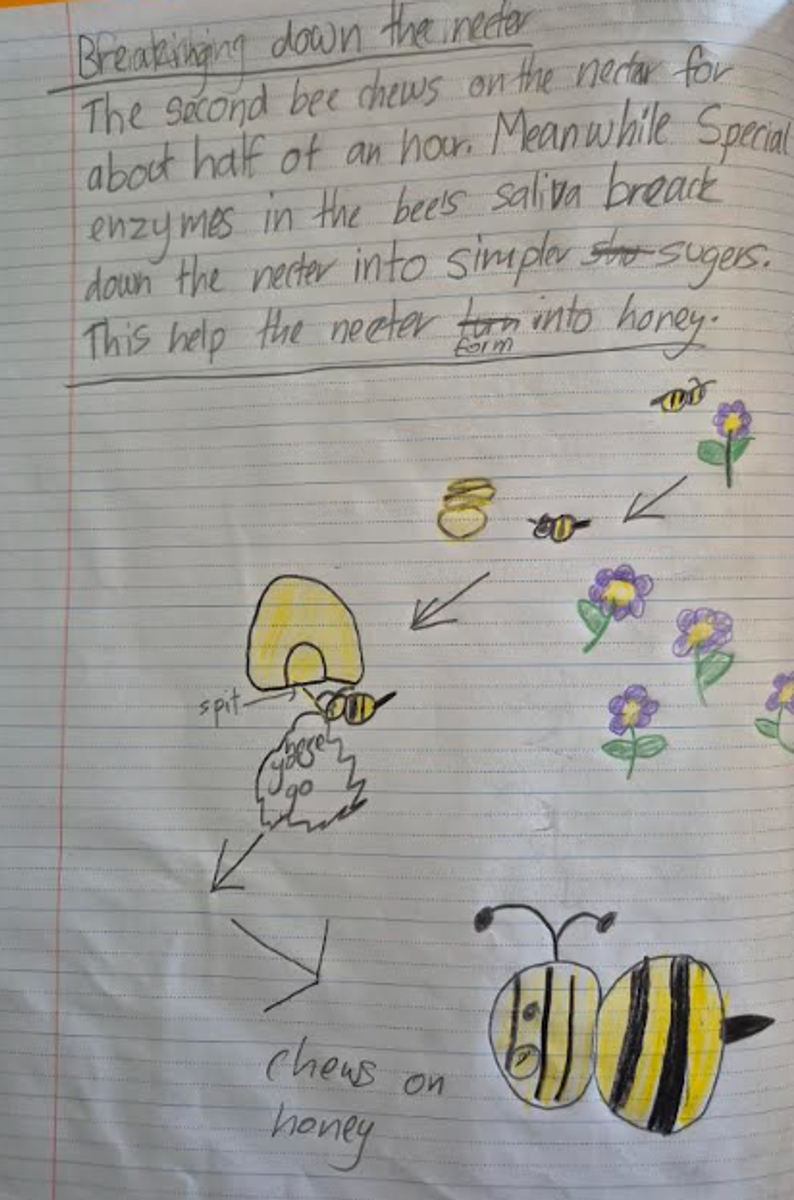 Breakinging down the necter
The second bee chews on the nectar for
about half of an hour. Meanwhile Special
enzymes in the bee's saliva breack
down the necter into simpler sugers.
This help the necter turn into honey.
form
spit
go
chews on
honey